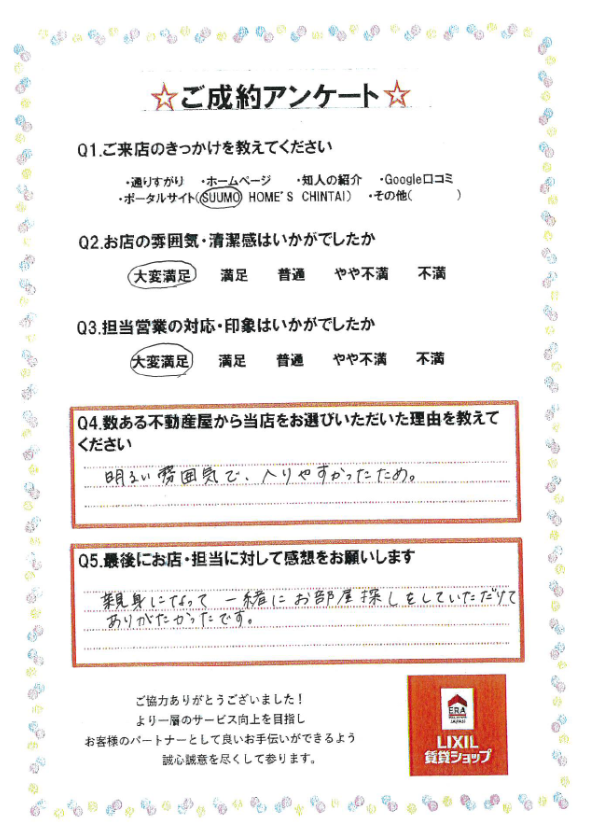 ☆ご成約アンケート☆
Q1.ご来店のきっかけを教えてください
・通りすがり ・ホームページ ・知人の紹介 ・Google口コミ
・ポータルサイト(SUUMO HOME'S CHINTAI) ・その他( )
Q2.お店の雰囲気・清潔感はいかがでしたか
大変満足 満足 普通 やや不満 不満
Q3.担当営業の対応・印象はいかがでしたか
大変満足 満足 普通 やや不満 不満
Q4.数ある不動産屋から当店をお選びいただいた理由を教えて
ください
明るい雰囲気で、入りやすかったため。
Q5.最後にお店・担当に対して感想をお願いします
親身になって 一緒に お部屋探しをしていただけて
ありがたかったです。
ご協力ありがとうございました！
より一層のサービス向上を目指し
お客様のパートナーとして良いお手伝いができるよう
誠心誠意を尽くして参ります。
ERA
LIXIL
賃貸ショップ